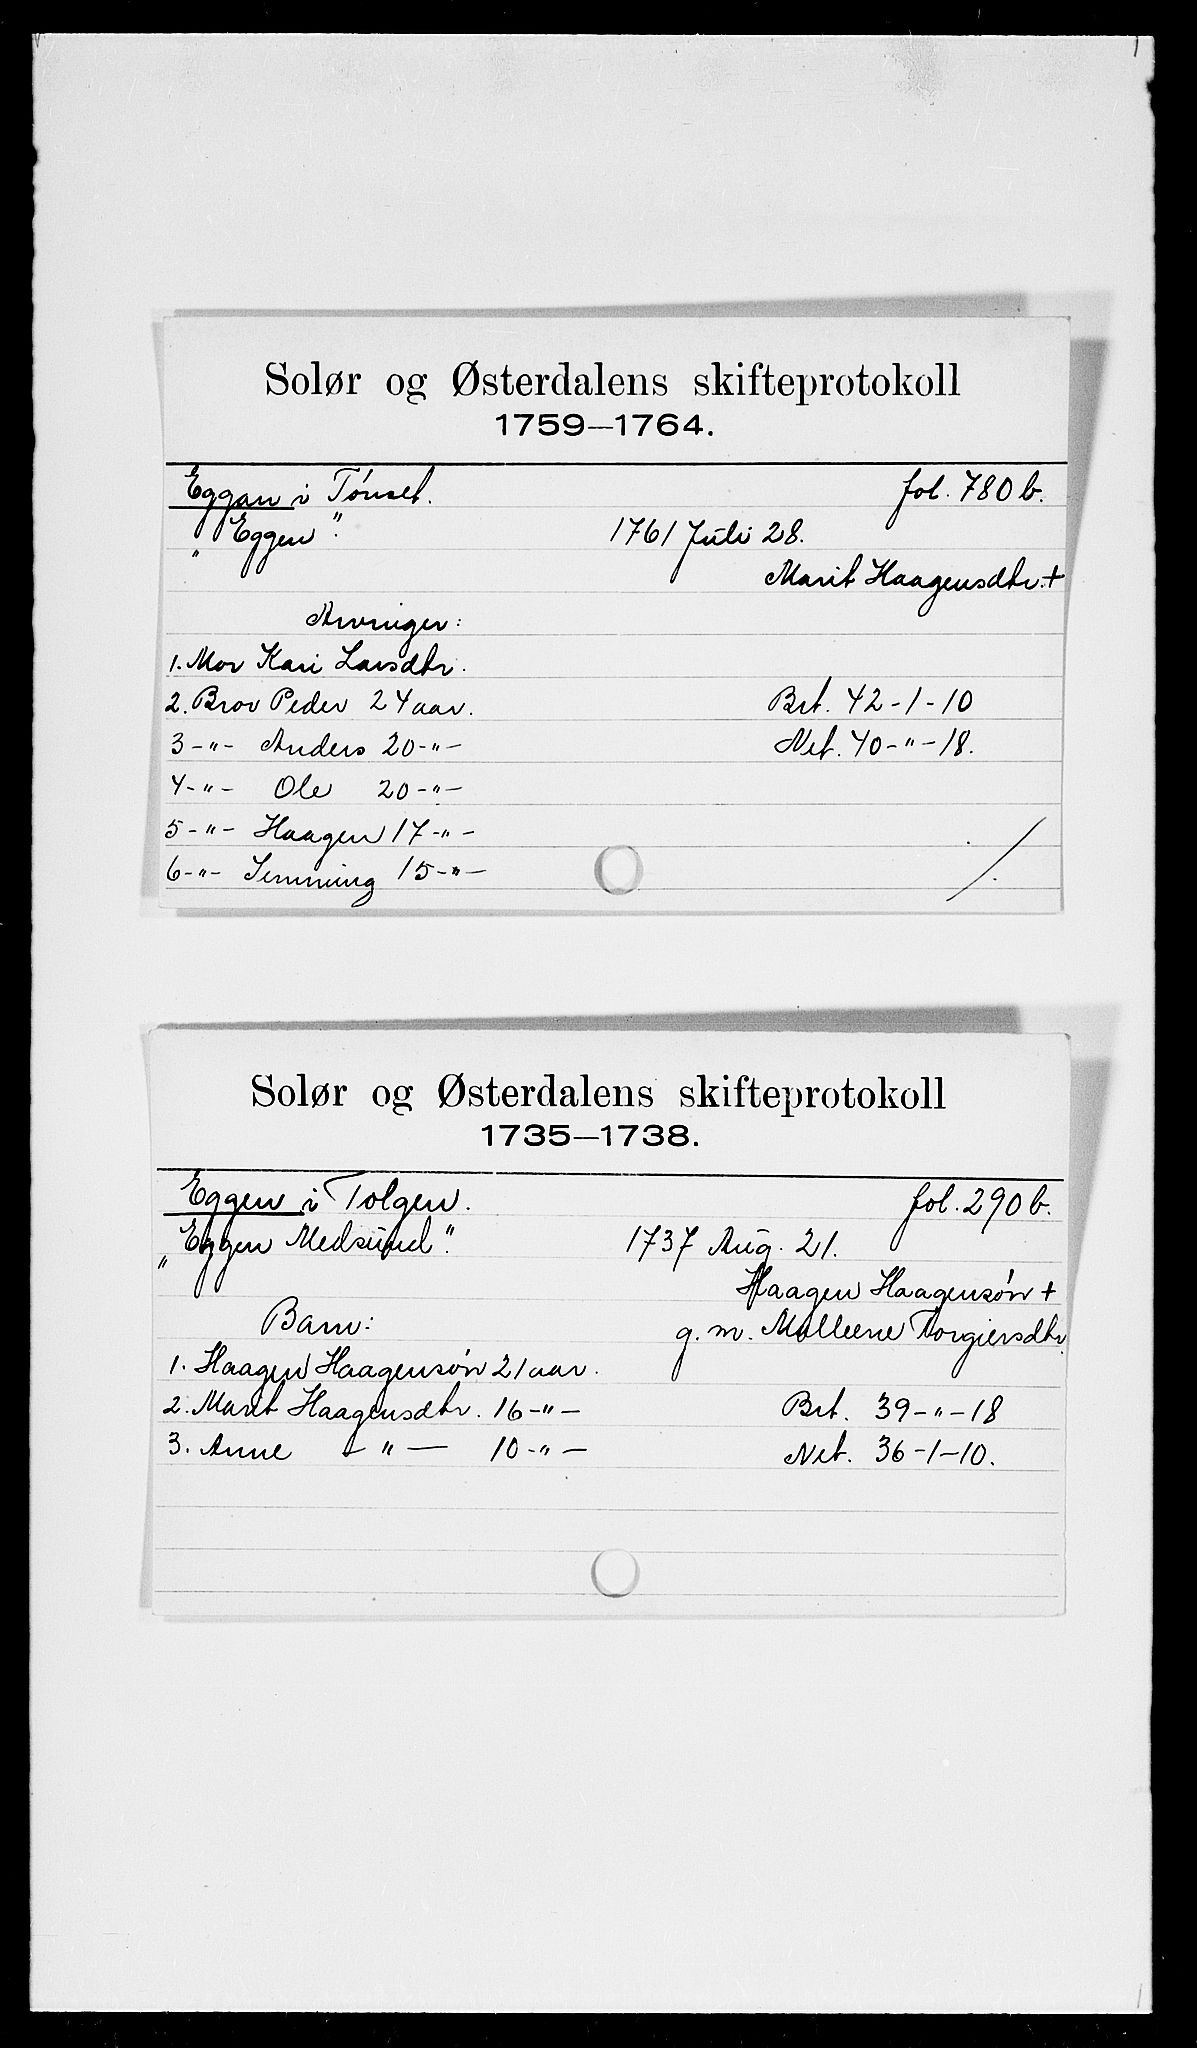 Solør og Østerdalens skifteprotokoll
1759—1764.
Eggan i Tønset. fol. 780 b.
„Eggen". 1761 Juli 28.
Marit Haagensdtr. +
Arvinger:
1. Mor Kari Larsdtr.
2. Bror Peder 24 aar. Brt. 42-1-10
3 -"- Anders 20 -"- Net. 40-"-18.
4 -"- Ole 20 -"-
5 -"- Haagen 17 -"-
6 -"- Semming 15 -"-
Solør og Østerdalens skifteprotokoll
1735—1738.
Eggen i Tolgen. fol. 290 b.
„Eggen Medsund". 1737 Aug. 21.
Haagen Haagensøn +
Barn: g. m. Torgiersdtr.
1. Haagen Haagensøn 21 aar.
2. Marit Haagensdtr. 16 -"- Brt. 39-"-18
3. Anne -"- 10 -"- Net. 36-1-10.